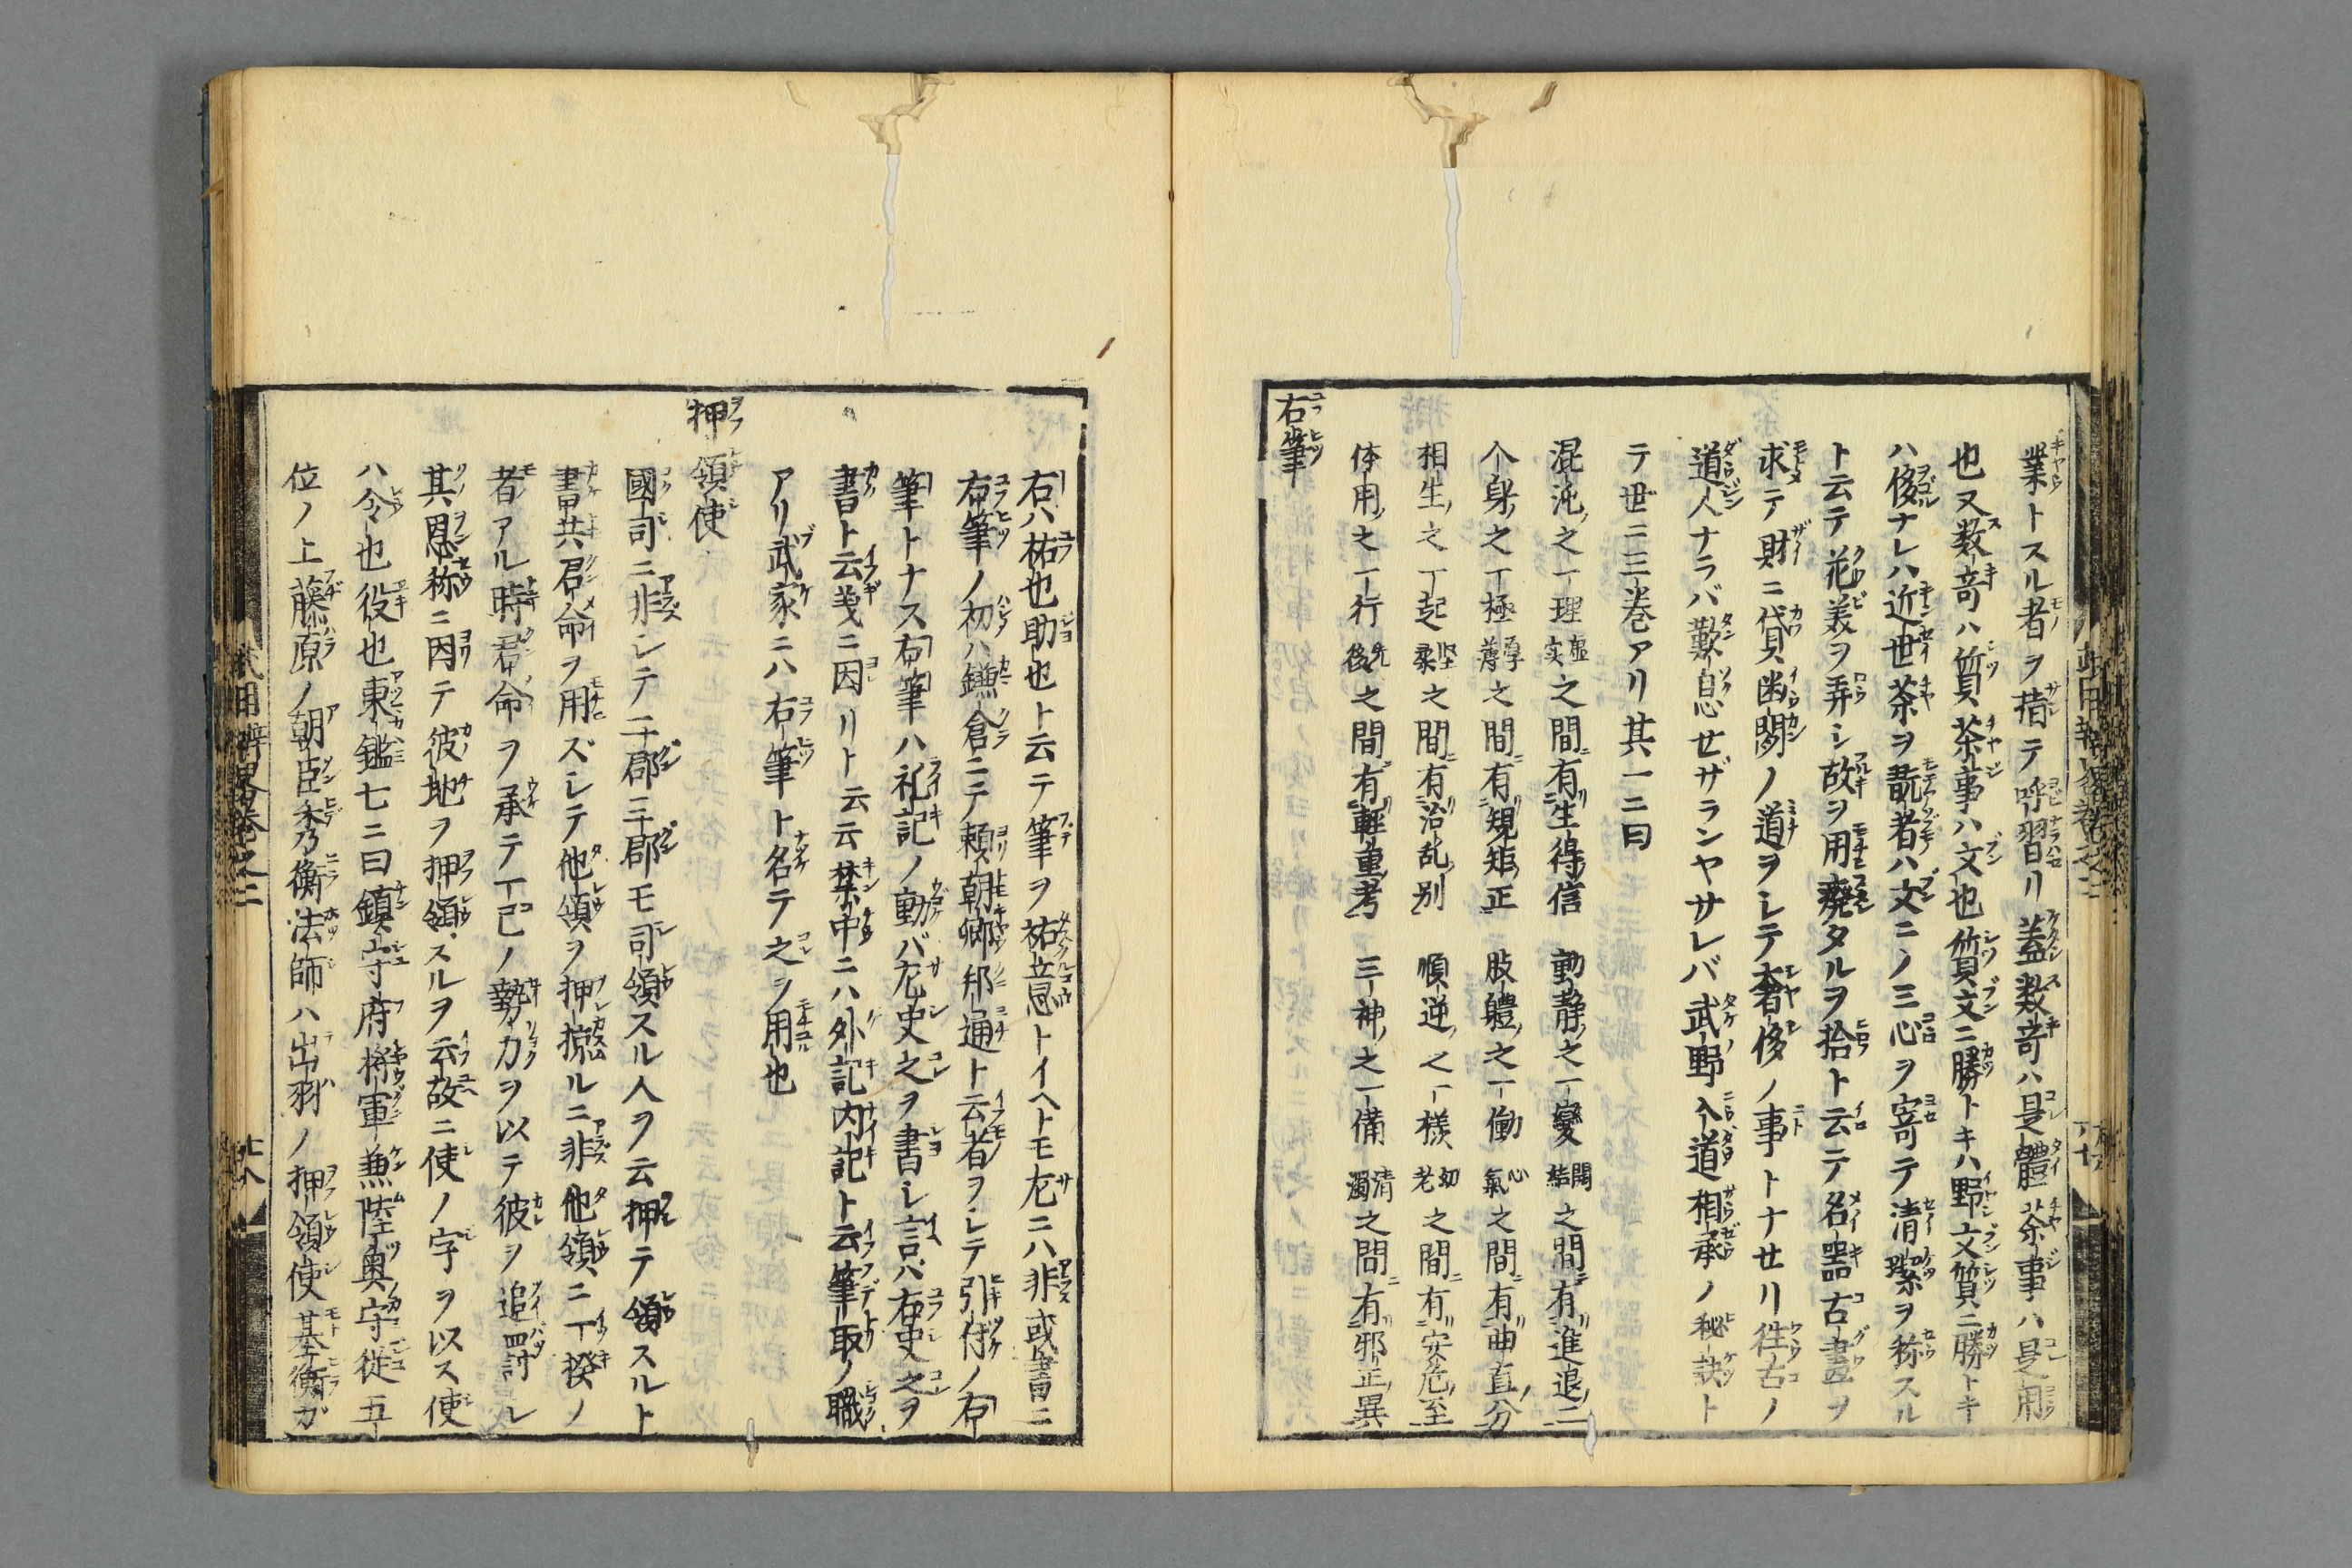 業トスル者ヲ措テ呼習ハセリ蓋数竒ハ是體茶事ハ是用
也又数竒ハ質茶事ハ文也質文ニ勝トキハ野文質ニ勝トキ
ハ侈ナレハ近世茶ヲ翫者ハ文ニノミ心ヲ寄テ清潔ヲ称スル
ト云テ花美ヲ弄シ故ヲ用廢タルヲ拾ト云テ名器古畫ヲ
求テ財ニ貸幽閑ノ道ヲシテ奢侈ノ事トナセリ徃古ノ
道人ナラバ歎息せザランヤサレバ武野入道相承ノ秘訣ト
テ世ニ三巻アリ其一ニ曰
混沌之一理実虚之間有生得信 動静之一變 開結之間有進退二
个身之一極 厚薄之間有規矩正 肢體之一働 心氣之間有曲直分
相生之一起 堅柔之間有治乱別 順逆之一様 幼老之間有安危至
体用之一行 先後之間有軽重考 三神之一備 清濁之間有邪正異
右筆
右ハ祐也助也ト云テ筆ヲ祐意トイヘトモ尤ニハ非或書ニ
右筆ノ初ハ鎌倉ニテ頼朝卿邦通ト云者ヲシテ引付ノ右
筆トナス右筆ハ礼記ノ動バ左史之ヲ書シ言バ右史之ヲ
書ト云義ニ因リト云云禁中ニハ外記内記ト云筆取ノ職
アリ武家ニハ右筆ト名テ之ヲ用也
押領使
國司ニ非シテ二郡三郡モ司領スル人ヲ云押テ領スルト
書共君命ヲ用ズシテ他領ヲ押掠ルニ非他領ニ一揆ノ
者アル時君命ヲ承テ一己ノ勢力ヲ以テ彼ヲ追罸シ
其恩称ニ因テ彼地ヲ押領スルヲ云故ニ使ノ字ヲ以ス使
ハ令也役也東鑑七ニ曰鎮守府将軍兼陸奥守従五
位ノ上藤原ノ朝臣秀衡法師ハ出羽ノ押領使基衡ガ
武田